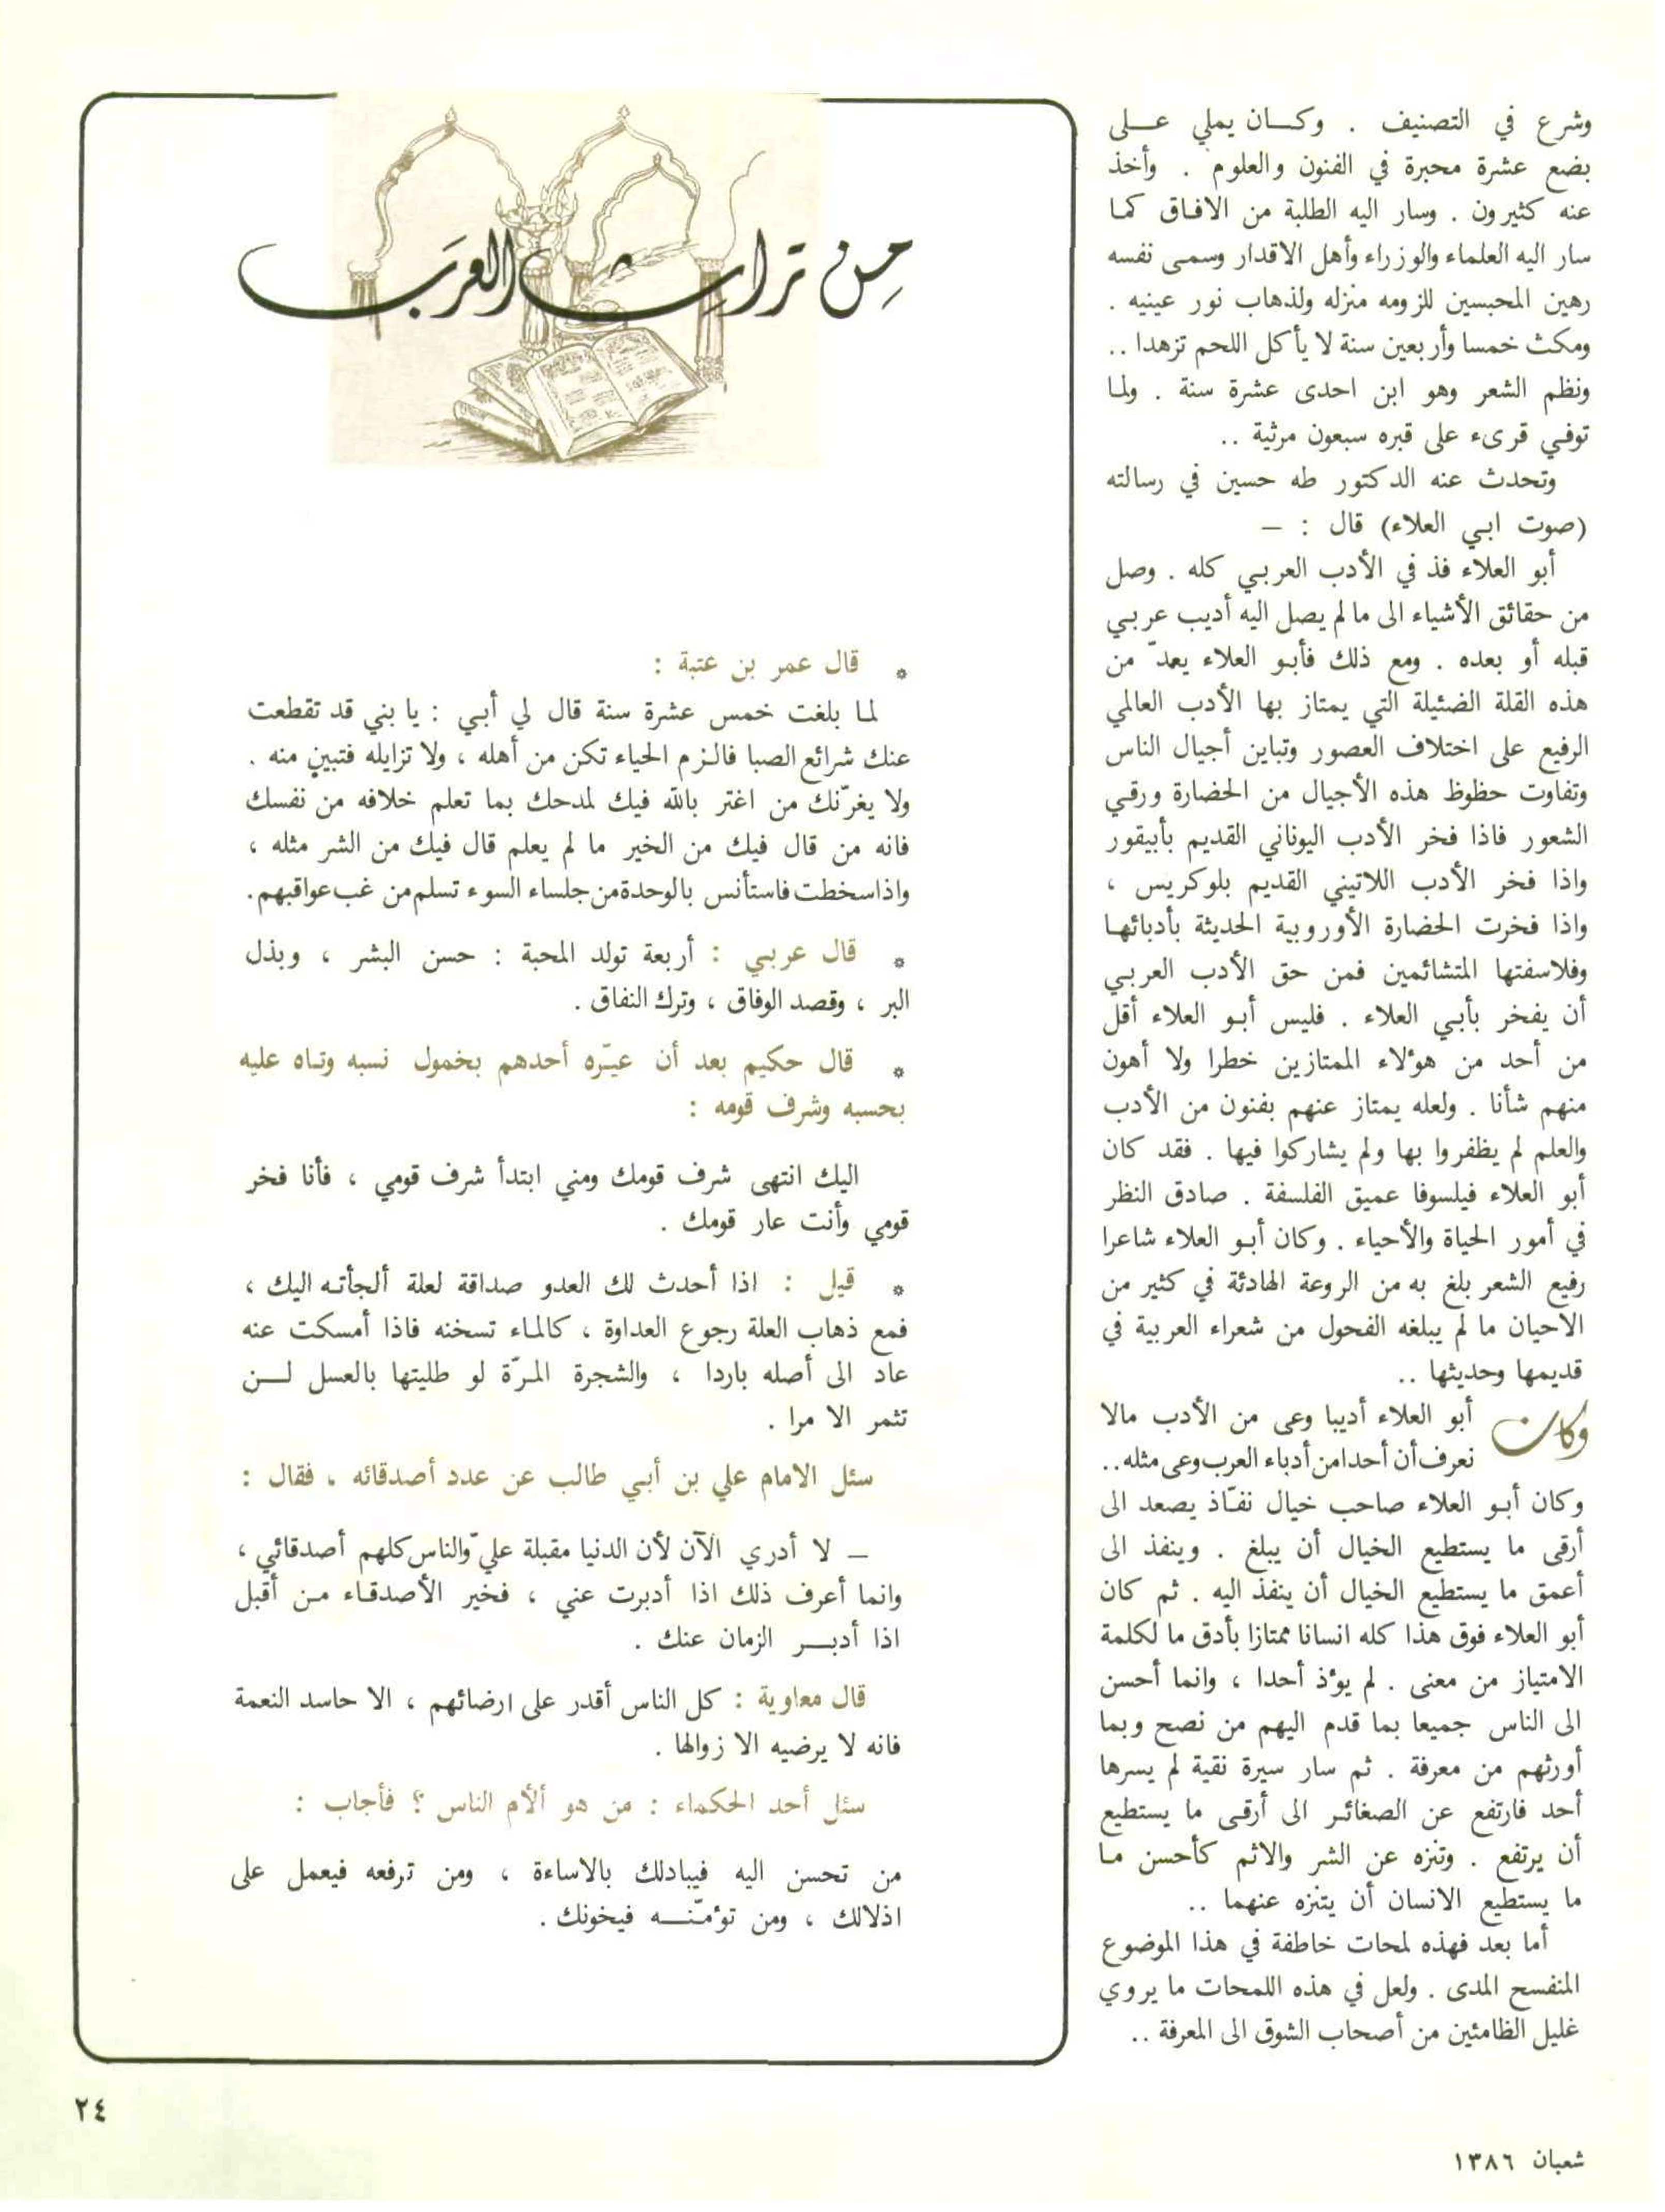 وشرع في التصنيف . وكـان يملي عـلى
بضع عشرة محبرة في الفنون والعلوم . وأخذ
عنه كثيرون . وسار اليه الطلبة من الافاق كما
سار اليه العلماء والوزراء وأهل الاقدار وسمى نفسه
رهين المحبسين للزومه منزله ولذهاب نور عينيه .
ومكث خمسا وأربعين سنة لا يأكل اللحم تزهدا ..
ونظم الشعر وهو ابن احدى عشرة سنة . ولما
توفي قرىء على قبره سبعون مرثية ..
وتحدث عنه الدكتور طه حسين في رسالته
(صوت ابي العلاء) قال : —
أبو العلاء فذ في الأدب العربي كله . وصل
من حقائق الأشياء الى ما لم يصل اليه أديب عربي
قبله أو بعده . ومع ذلك فأبو العلاء يعدّ من
هذه القلة الضئيلة التي يمتاز بها الأدب العالمي
الرفيع على اختلاف العصور وتباين أجيال الناس
وتفاوت حظوظ هذه الأجيال من الحضارة ورقي
الشعور فاذا فخر الأدب اليوناني القديم بأبيقور
واذا فخر الأدب اللاتيني القديم بلوكريس ،
واذا فخرت الحضارة الأوروبية الحديثة بأدبائها
وفلاسفتها المتشائمين فمن حق الأدب العربي
أن يفخر بأبي العلاء . فليس أبو العلاء أقل
من أحد من هؤلاء الممتازين خطرا ولا أهون
منهم شأنا . ولعله يمتاز عنهم بفنون من الأدب
والعلم لم يظفروا بها ولم يشاركوا فيها . فقد كان
أبو العلاء فيلسوفا عميق الفلسفة . صادق النظر
في أمور الحياة والأحياء . وكان أبو العلاء شاعرا
رفيع الشعر بلغ به من الروعة الهادئة في كثير من
الاحيان ما لم يبلغه الفحول من شعراء العربية في
قديمها وحديثها ..
وكان أبو العلاء أديبا وعى من الأدب مالا
نعرف أن أحدا من أدباء العرب وعى مثله..
وكان أبو العلاء صاحب خيال نفّاذ يصعد الى
أرقى ما يستطيع الخيال أن يبلغ . وينفذ الى
أعمق ما يستطيع الخيال أن ينفذ اليه . ثم كان
أبو العلاء فوق هذا كله انسانا ممتازا بأدق ما لكلمة
الامتياز من معنى . لم يؤذ أحدا ، وانما أحسن
الى الناس جميعا بما قدم اليهم من نصح وبما
أورثهم من معرفة . ثم سار سيرة نقية لم يسرها
أحد فارتفع عن الصغائر الى أرقى ما يستطيع
أن يرتفع . وتنزه عن الشر والاثم كأحسن ما
ما يستطيع الانسان أن يتنزه عنهما ..
أما بعد فهذه لمحات خاطفة في هذا الموضوع
المنفسح المدى . ولعل في هذه اللمحات ما يروي
غليل الظامئين من أصحاب الشوق الى المعرفة ..
من تراث العرب
* قال عمر بن عتبة :
لما بلغت خمس عشرة سنة قال لي أبي : يا بني قد تقطعت
عنك شرائع الصبا فالزم الحياء تكن من أهله ، ولا تزايله فتبين منه .
ولا يغرّنك من اغتر بالله فيك لمدحك بما تعلم خلافه من نفسك
فانه من قال فيك من الخير ما لم يعلم قال فيك من الشر مثله ،
واذا سخطت فاستأنس بالوحدة من جلساء السوء تسلم من غب عواقبهم.
* قال عربي : أربعة تولد المحبة : حسن البشر ، وبذل
البر ، وقصد الوفاق ، وترك النفاق .
* قال حكيم بعد أن عيّره أحدهم بخمول نسبه وتاه عليه
بحسبه وشرف قومه :
اليك انتهى شرف قومك ومني ابتدأ شرف قومي ، فأنا فخر
قومي وأنت عار قومك .
* قيل : اذا أحدث لك العدو صداقة لعلة ألجأته اليك ،
فمع ذهاب العلة رجوع العداوة ، كالماء تسخنه فاذا أمسكت عنه
عاد الى أصله باردا ، والشجرة المرّة لو طليتها بالعسل لـن
تثمر الا مرا .
سئل الامام علي بن أبي طالب عن عدد أصدقائه . فقال :
— لا أدري الآن لأن الدنيا مقبلة عليّ والناس كلهم أصدقائي ،
وانما أعرف ذلك اذا أدبرت عني ، فخير الأصدقاء من أقبل
اذا أدبـر الزمان عنك .
قال معاوية : كل الناس أقدر على ارضائهم ، الا حاسد النعمة
فانه لا يرضيه الا زوالها .
سئل أحد الحكماء : من هو ألأم الناس ؟ فأجاب :
من تحسن اليه فيبادلك بالاساءة ، ومن ترفعه فيعمل على
اذلالك ، ومن تؤمّنـه فيخونك .
٢٤
شعبان ١٣٨٦